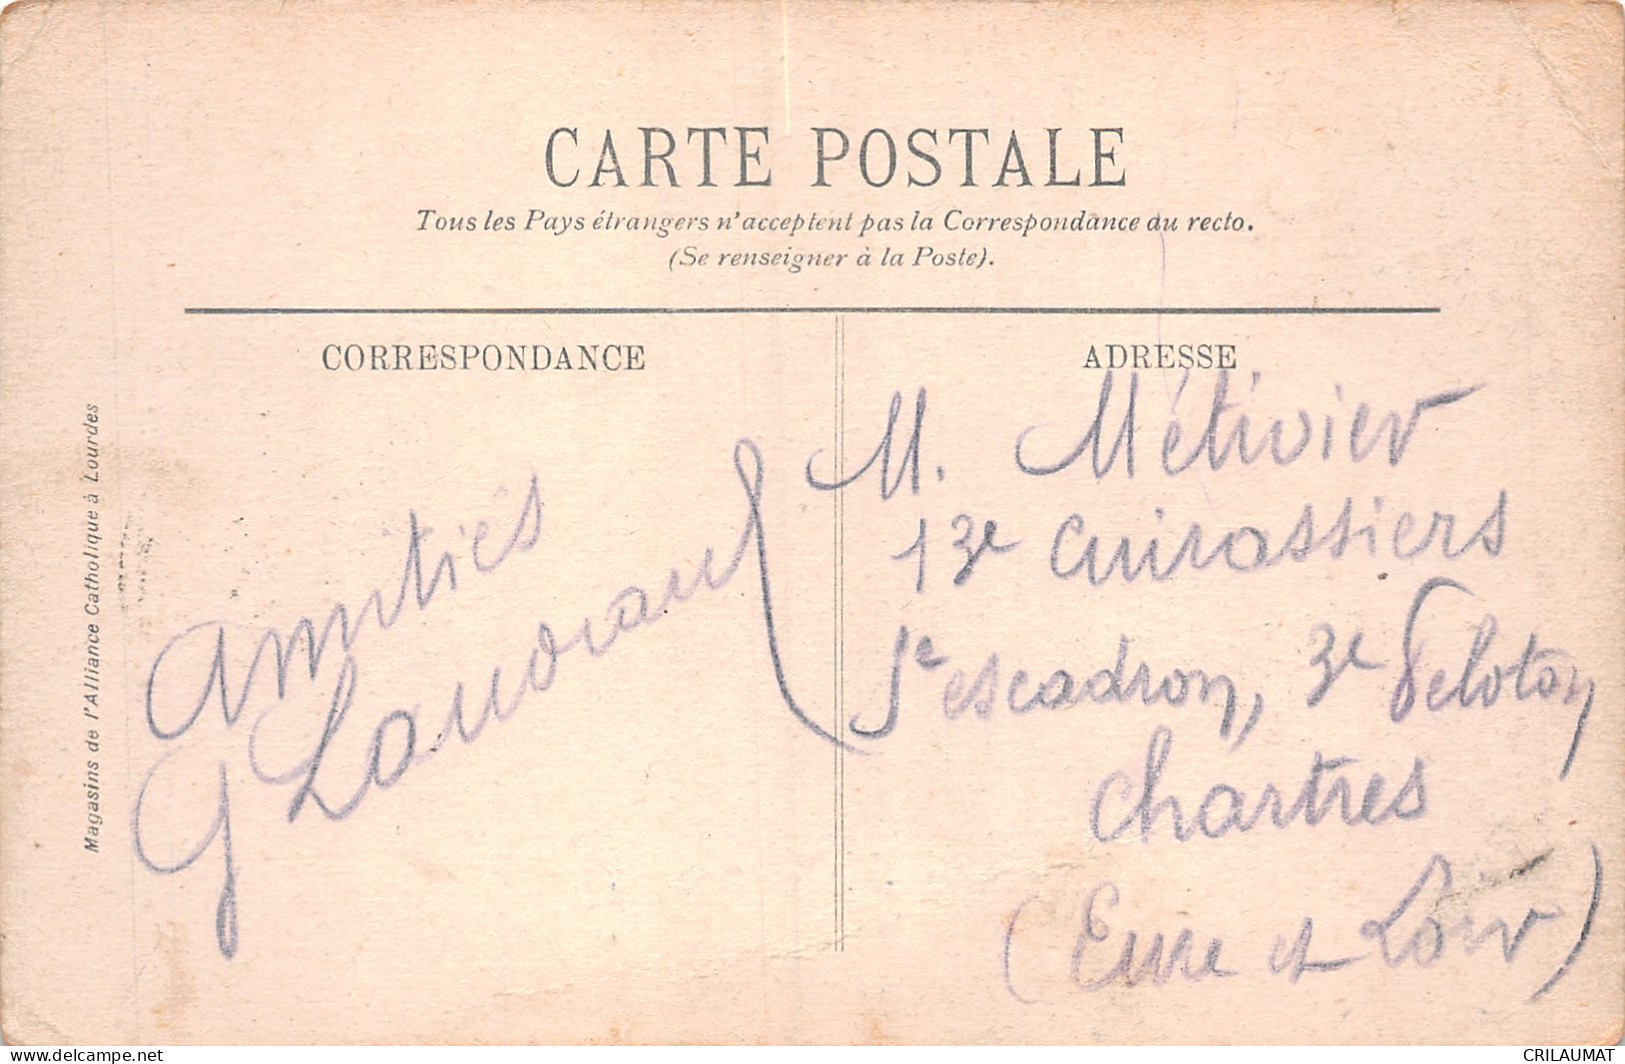 CARTE POSTALE
Tous les Pays étrangers n'acceptent pas la Correspondance au recto.
(Se renseigner à la Poste).
CORRESPONDANCE
ADRESSE
Magasins de l'Alliance Catholique à Lourdes
Amitiés
G
M. Métivier
13e Cuirassiers
escadron, 3e Peloton
Chartres
(Eure et Loir)
www.delcampe.net
CRILAUMAT